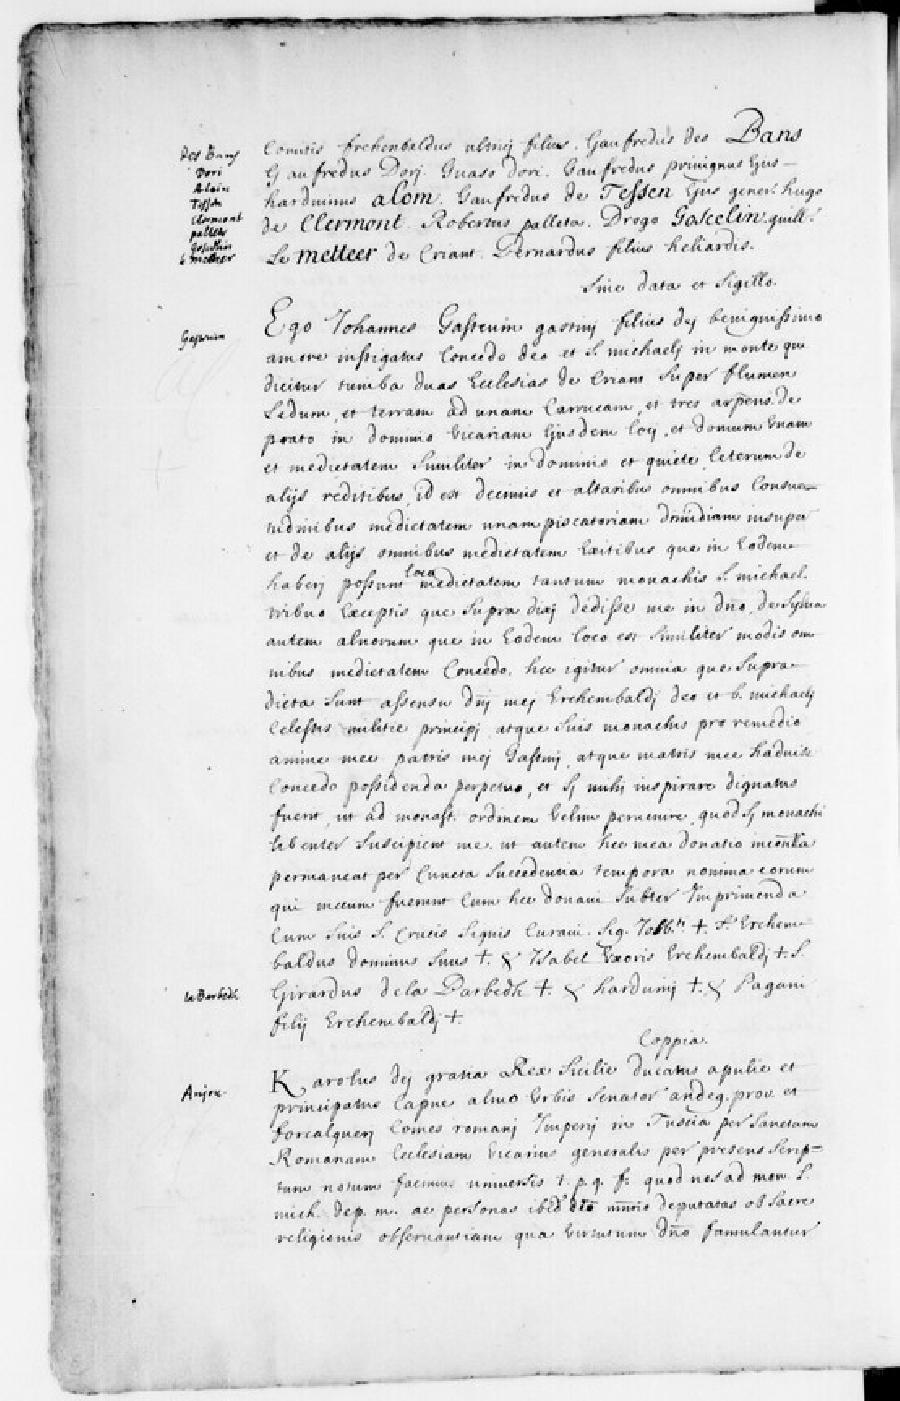 des Bans
Dori
Alain
Tessen
Clermont
palleta
Goscelin
le metteer
Comitis Erchenbeldus ulrnij filius. Gaufredus des Bans
Gaufredus Dorj. Guaso dori. Gaufredus privignus Ejus
harduinus alom. Gaufredus de Tessen Ejus gener. hugo
de Clermont. Robertus palleta. Drogo Goscelin. guill.
Le metteer de Criant. Bernardus filius heliardis.
Sine data et Sigillo.
Ego Johannes Gasteuin gastinij filius dej benignissimo
amore instigatus Concedo deo et S. michaelj in monte qui
dicitur tumba duas Ecclesias de Criant Super flumen
Ledum, et terram ad unam Carrucam, et tres arpens. de
prato in dominio Vicariam Ejusdem locj, et domum Unam
et medietatem Similiter in dominio et quiete, Ceterum de
alijs reditibus, id est decimis et altaribus omnibus Consue-
tudinibus medietatem unam piscatoriam dimidiam insuper
et de alijs omnibus medietatem Exitibus que in Eodem
haberj possunt loco medietatem tantum monachis S. michael.
tribuo Exceptis que Supra dixj dedisse me in dno, de Sylva
autem alnorum que in Eodem loco est Similiter modis om
nibus medietatem Concedo. hec igitur omnia que Supra
dicta Sunt assensu dnj mej Erchembaldj deo et b. michaelj
Celestis militie principj atque Suis monachis pro remedio
anime mee patris mej Gastinj, atque matris mee haduis
Concedo possidenda perpetuo, et Sj mihj inspirare dignatus
fuerit, ut ad monast. ordinem Velim pervenire, quod Sj monachi
libenter Suscipient me. ut autem hec mea donatio
permaneat per Cuncta Succedentia tempora nomina eorum
qui mecum fuerunt Cum hec donavi Subter Imprimenda
Cum Suis S. Crucis Signis Curavi. Sig. +. S. Erchem-
baldus dominus Suus +. S Isabel Uxoris Erchembaldj +. S.
Gesvrin
la Barbech
Girardus de la Barbech +. S harduinj +. S Pagani
filij Erchembaldj +.
Coppia.
Anjou.
Karolus dej gratia Rex Sicilie ducatus apulie et
principatus Capue almo Urbis Senator andeg. prov. et
forcalquerj Comes romanj Imperij in Tuscia per Sanctam
Romanam Ecclesiam Vicarius generalis per presens Scrip-
tum notum facimus universis t. p. q. f. quod nos ad mon. S.
mich. de p. m. ac personas ibid. deputatas ob Sacre
religionis observantiam qua Virtutum dno famulantur